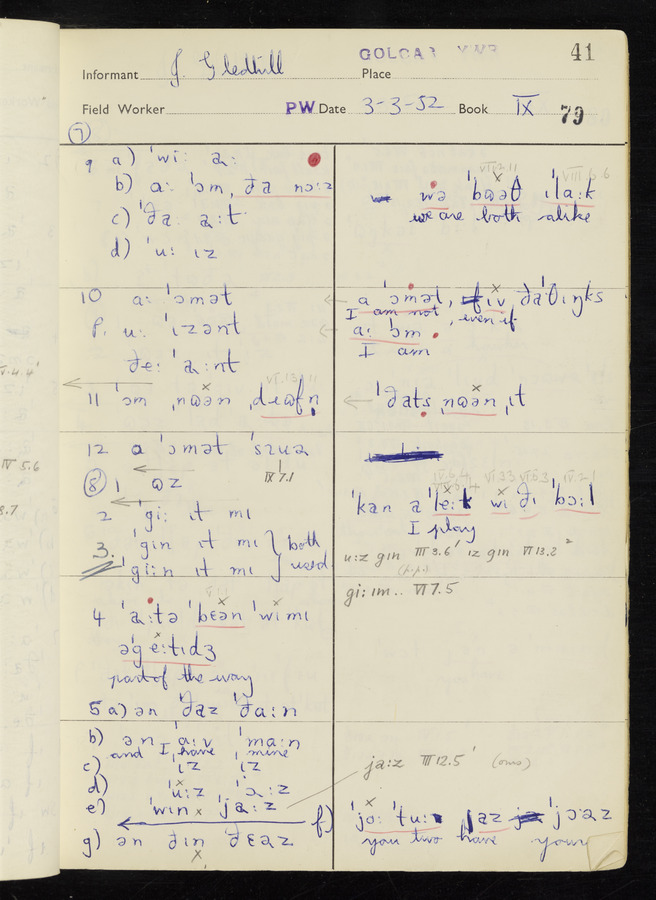 41
Informant J. Gledhill
GOLCAR
Place
Field Worker PW Date 3-3-52 Book IX 79
7
9 a) ˈwiː aː
b) aː ˈɔm, ða nɔːz
c) ˈðaː aːt
d) ˈuː ɪz
wə ˈbʊəθ ɪˈlaːk
we are both alike
10 aː ˈɔmət
P. uː ˈɪzənt
ðeː ˈaːnt
a ˈɔmət, ɪv ðaˈθɪŋks
I am not, even if
aː ˈɔm
I am
11 ˈɔm ˌnʊən ˌdɪəfn̩
ˈðats ˌnʊən ˌɪt
12 a ˈɔmət ˈsɪuə
IX 7.1
8 1 ʊz
2 ˈgiː ɪt mɪ
3. ˈgin ɪt mɪ } both
ˈgiːn ɪt mɪ } used
ˈkan a ˈleːk wi ðɪ ˈbɔːl
I play
uːz gɪn III 8.6' ɪz gɪn VI 13.8
(p.p.)
giː ɪm.. VI 7.5
4 ˈaːtə ˈbɛən ˈwi mɪ
əˈgeːtɪdʒ
part of the way
5 a) ən ˈðaz ˈðaːn
b) ən ˈaːv ˈmaːn
and I have mine
c) ɪz ɪz
d) ˈuːz ˈɔːz
e) ˈwin ˈjaːz
jaːz III 12.5' (ours)
f) ˈjoː ˈtuː az ˈjɔəz
you two have your
g) ən ðɪn ˈðɛəz